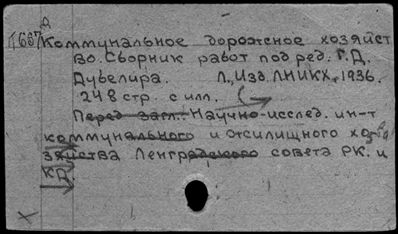 Д
4637
Коммунальное дорожное хозяйст
во. Сборник работ под ред. Г.Д.
Дубелира. Л., Изд. ЛНИКХ, 1936.
248 стр. с илл. (
Перед загл.: Научно-исслед. ин-т
коммунального и жилищного хо
зяйства Ленградского совета РК. и
КД.